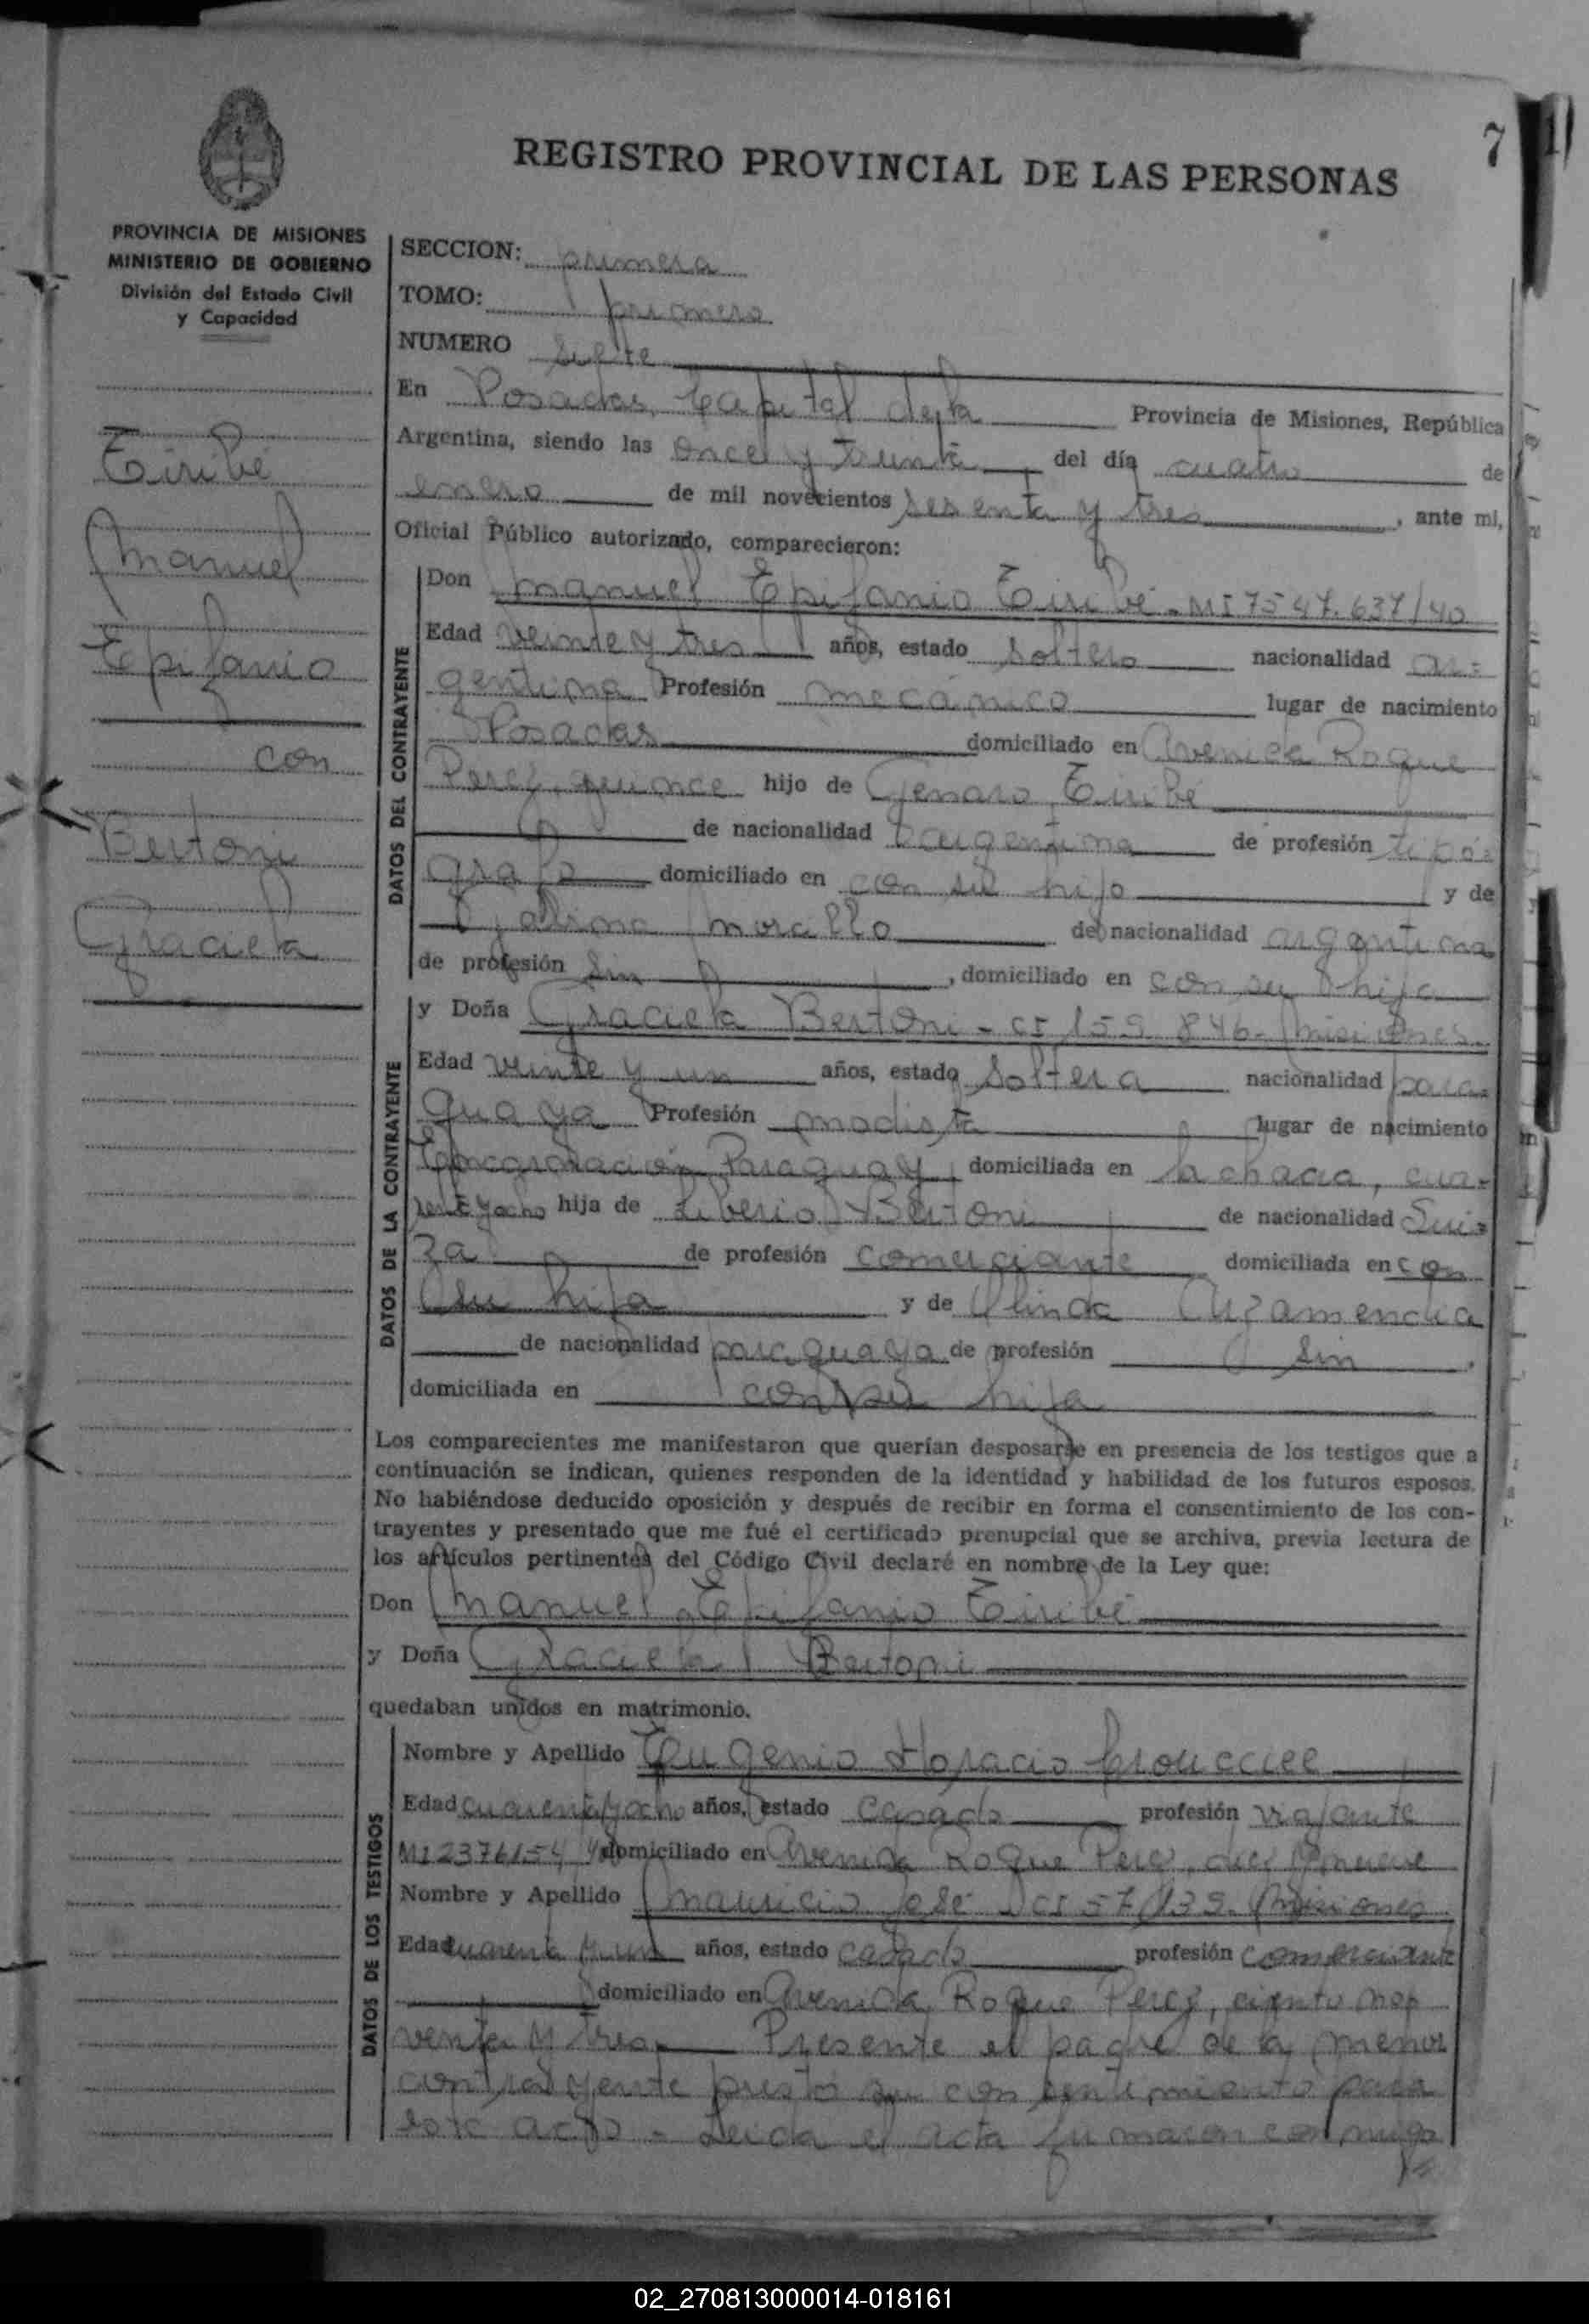 7
REGISTRO PROVINCIAL DE LAS PERSONAS
PROVINCIA DE MISIONES
MINISTERIO DE GOBIERNO
División del Estado Civil
y Capacidad
Tiribé
Manuel
Epifanio
con
Bertoni
Graciela
SECCION: primera
TOMO: primero
NUMERO siete
En Posadas, Capital de la Provincia de Misiones, República
Argentina, siendo las once y treinta del día cuatro de
enero de mil novecientos sesenta y tres, ante mi,
Oficial Público autorizado, comparecieron:
DATOS DEL CONTRAYENTE
Don Manuel Epifanio Tiribé - MI 7547.637/40
Edad veinte y tres años, estado soltero nacionalidad ar=
gentina Profesión mecánico lugar de nacimiento
Posadas domiciliado en Avenida Roque
Perez, quince hijo de Genaro Tiribé
de nacionalidad argentina de profesión tipó=
grafo domiciliado en con su hijo y de
de nacionalidad argentina
de profesión sin, domiciliado en con su hijo
DATOS DE LA CONTRAYENTE
y Doña Graciela Bertoni - CI 159 846- Misiones.
Edad veinte y un años, estado soltera nacionalidad para=
guaya Profesión modista lugar de nacimiento
Encarnación Paraguay, domiciliada en la chacra, cua-
renta y ocho hija de Liberio Bertoni de nacionalidad Sui=
za de profesión comerciante domiciliada en con
su hija y de Olinda Arzamendia
de nacionalidad paraguaya de profesión sin
domiciliada en con su hija
Los comparecientes me manifestaron que querían desposarse en presencia de los testigos que a
continuación se indican, quienes responden de la identidad y habilidad de los futuros esposos.
No habiéndose deducido oposición y después de recibir en forma el consentimiento de los con-
trayentes y presentado que me fué el certificado prenupcial que se archiva, previa lectura de
los artículos pertinentes del Código Civil declaré en nombre de la Ley que:
Don Manuel Epifanio Tiribé
y Doña Graciela Bertoni
quedaban unidos en matrimonio.
DATOS DE LOS TESTIGOS
Nombre y Apellido Eugenio Horacio
Edad cuarenta y ocho años, estado casado profesión viajante
MI 2376154 domiciliado en Avenida Roque Perez, diez y nueve
Nombre y Apellido Mauricio José CI 57139. Misiones
Edad cuarenta y un años, estado casado profesión comerciante
domiciliado en Avenida Roque Perez, ciento no=
venta y tres. Presente el padre de la menor
contrayente prestó su consentimiento para
este acto - Leída el acta firmaron conmigo
02_270813000014-018161